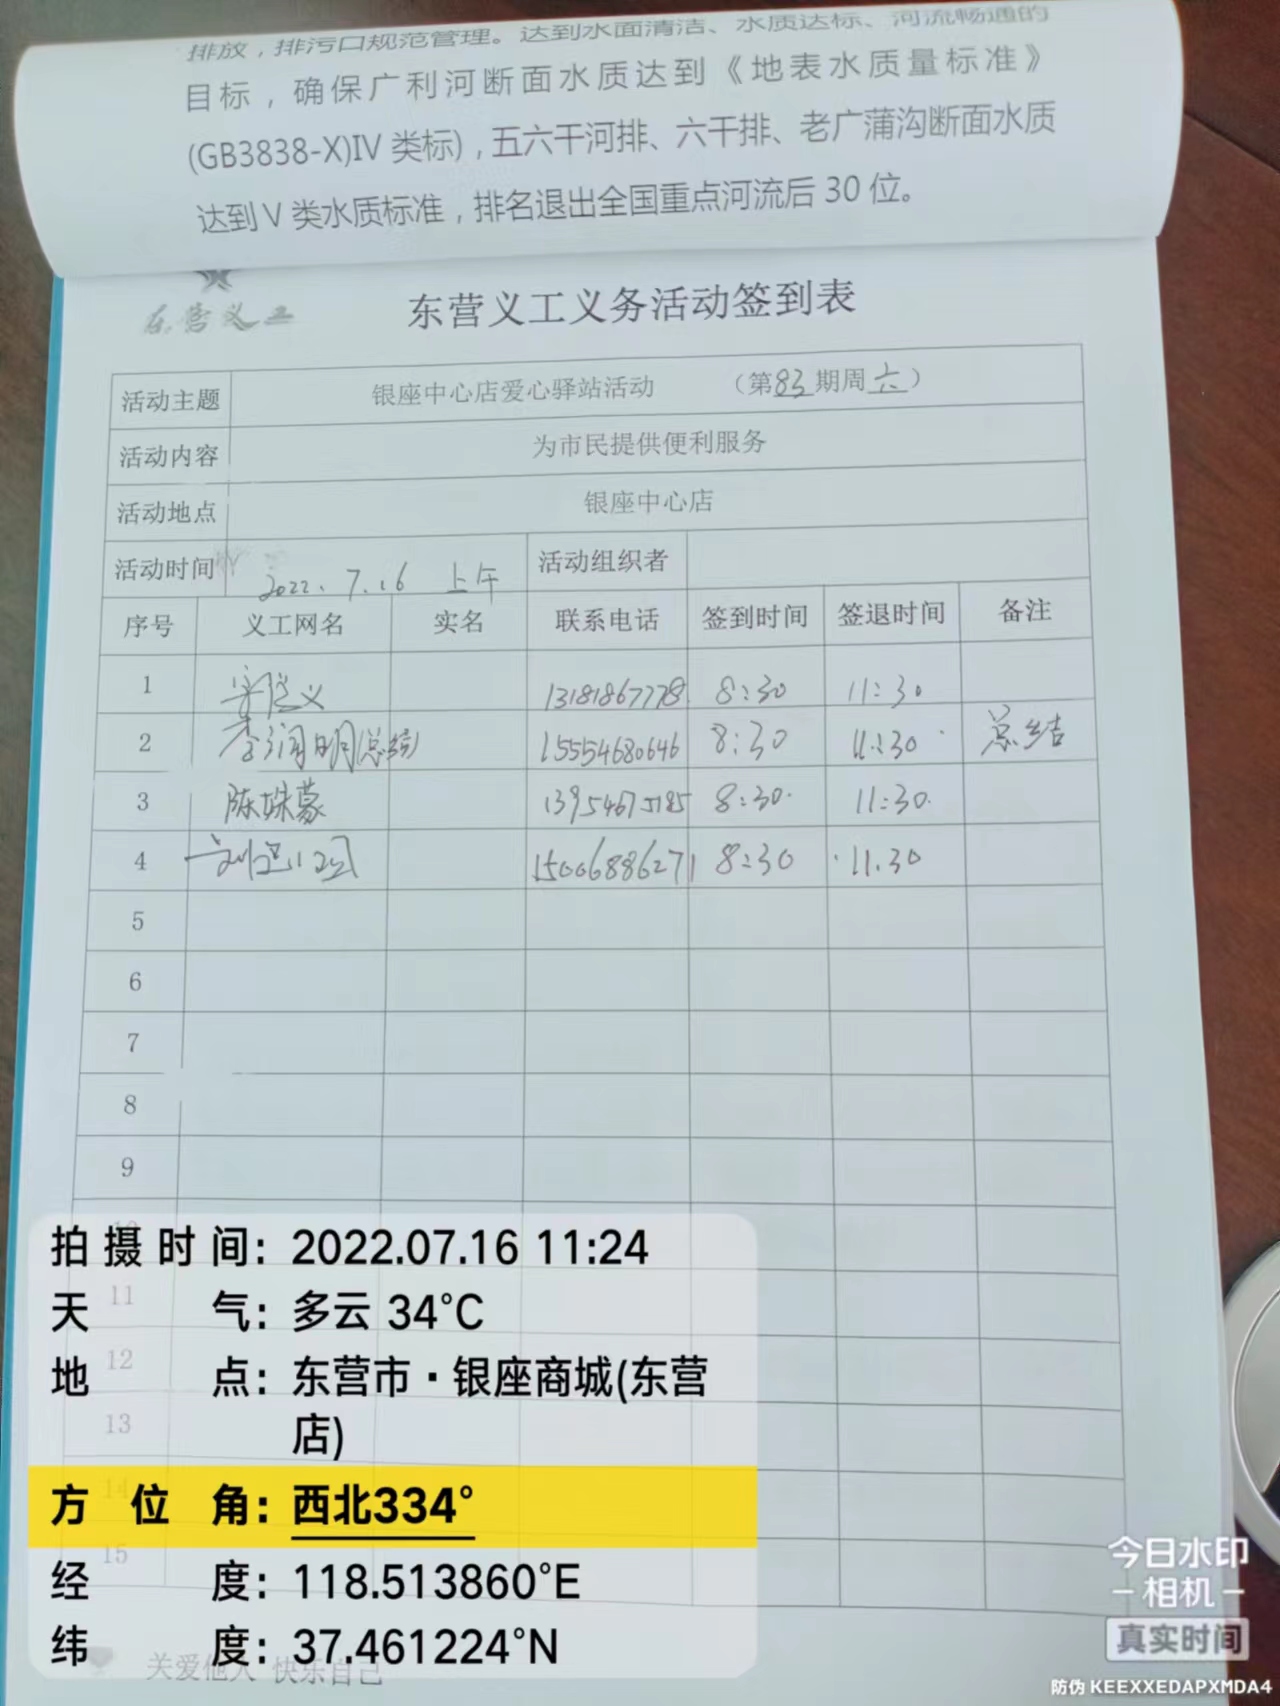 排放，排污口规范管理。达到水面清洁、水质达标、河流畅通的
目标，确保广利河断面水质达到《地表水质量标准》
(GB3838-X)IV 类标)，五六干河排、六干排、老广蒲沟断面水质
达到 V 类水质标准，排名退出全国重点河流后 30 位。
东营义工
东营义工义务活动签到表
活动主题 银座中心店爱心驿站活动 （第83期周六）
活动内容 为市民提供便利服务
活动地点 银座中心店
活动时间 2022.7.16 上午 活动组织者
序号 义工网名 实名 联系电话 签到时间 签退时间 备注
1 13181867778 8:30 11:30
2 李润明(总结) 15554680646 8:30 11:30 总结
3 陈姝蒙 13954675185 8:30 11:30
4 15006886271 8:30 11.30
5
6
7
8
9
10
11
12
13
14
15
拍摄时间：2022.07.16 11:24
天气：多云 34°C
地点：东营市·银座商城(东营
店)
方位角：西北334°
经度：118.513860°E
纬度：37.461224°N
关爱他人 快乐自己
今日水印
相机
真实时间
防伪 KEEXXEDAPXMDA4